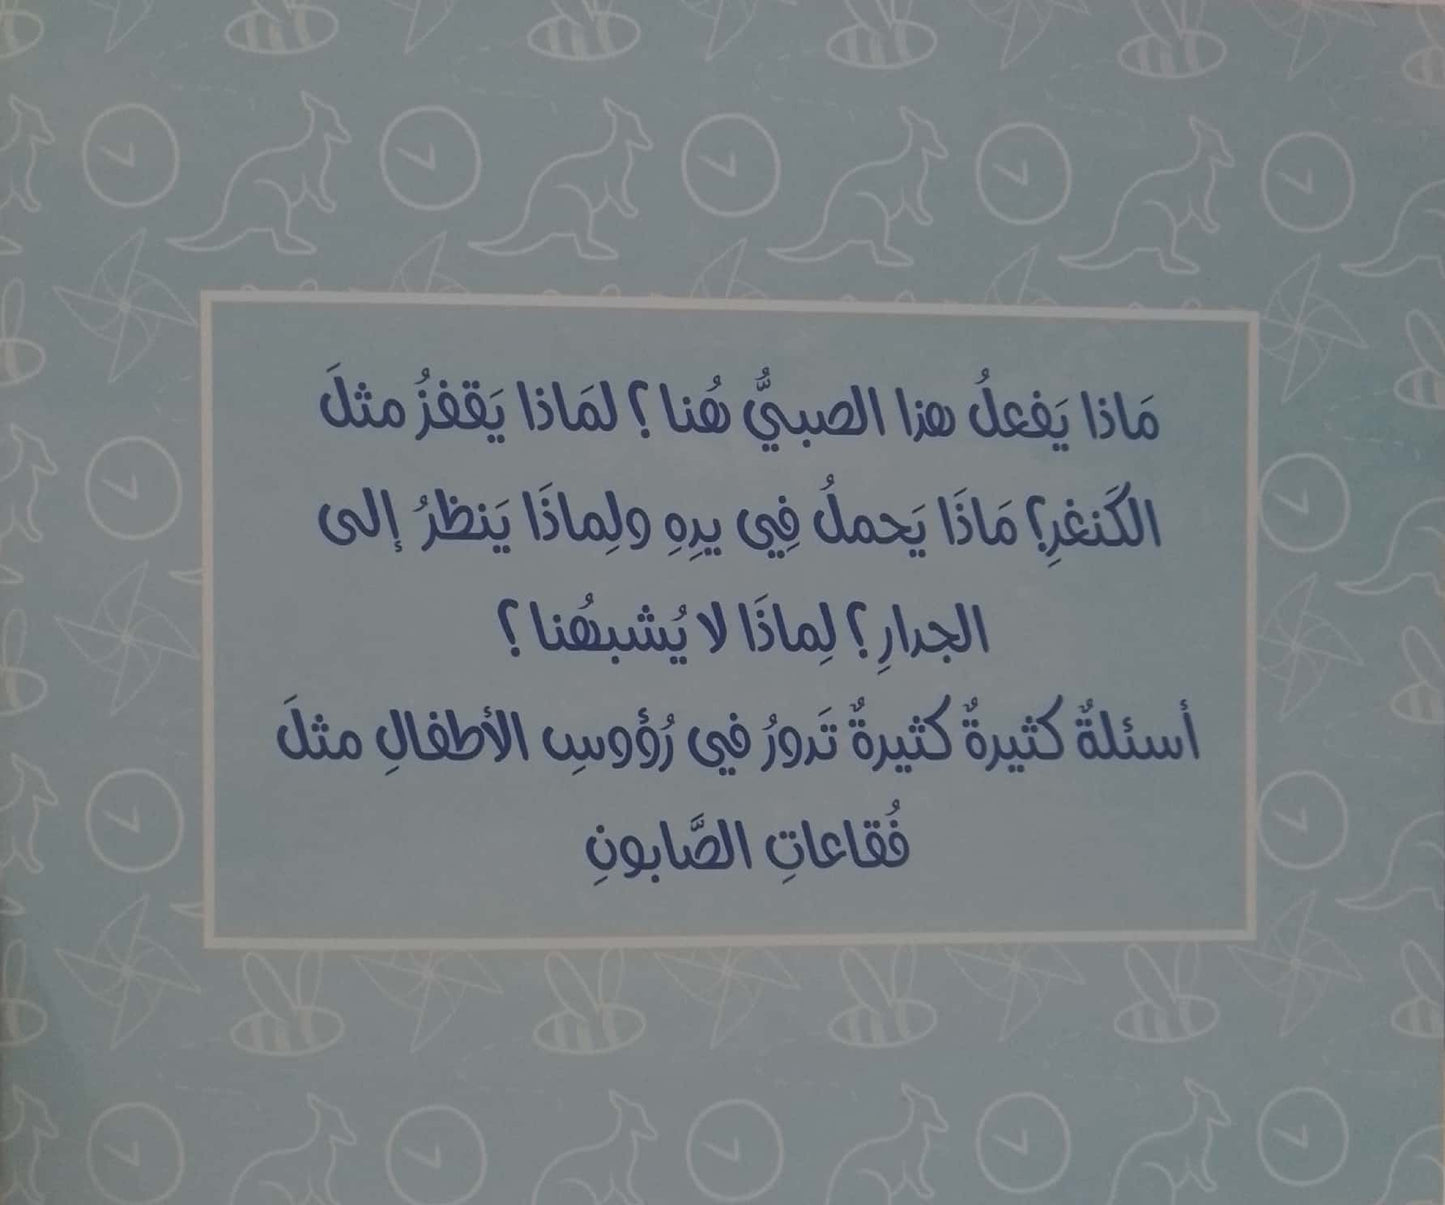 مَاذا يَفعلُ هذا الصبيُّ هُنا؟ لمَاذا يَقفزُ مثلَ
الكَنغرِ؟ مَاذَا يَحملُ فِي يدِهِ ولِماذَا يَنظرُ إلى
الجدارِ؟ لِماذَا لا يُشبهُنا؟
أسئلةٌ كثيرةٌ كثيرةٌ تَدورُ في رُؤوسِ الأطفالِ مثلَ
فُقاعاتِ الصَّابونِ